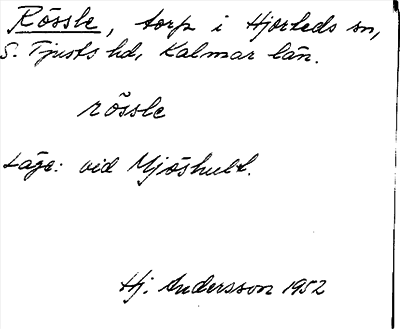 Rössle, torp i Hjorteds sn,
S. Tjusts hd, Kalmar län.
rössle
Läge: vid Mjöshult.
Hj. Andersson 1952